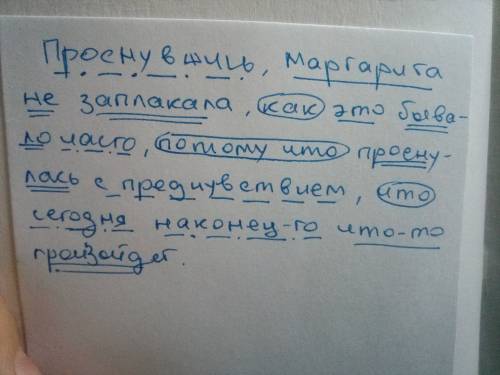 Проснувшись, Маргарита
не заплакала, как это быва-
ло часто, потому что просну-
лась с предчувствием, что
сегодня наконец-то что-то
произойдет.